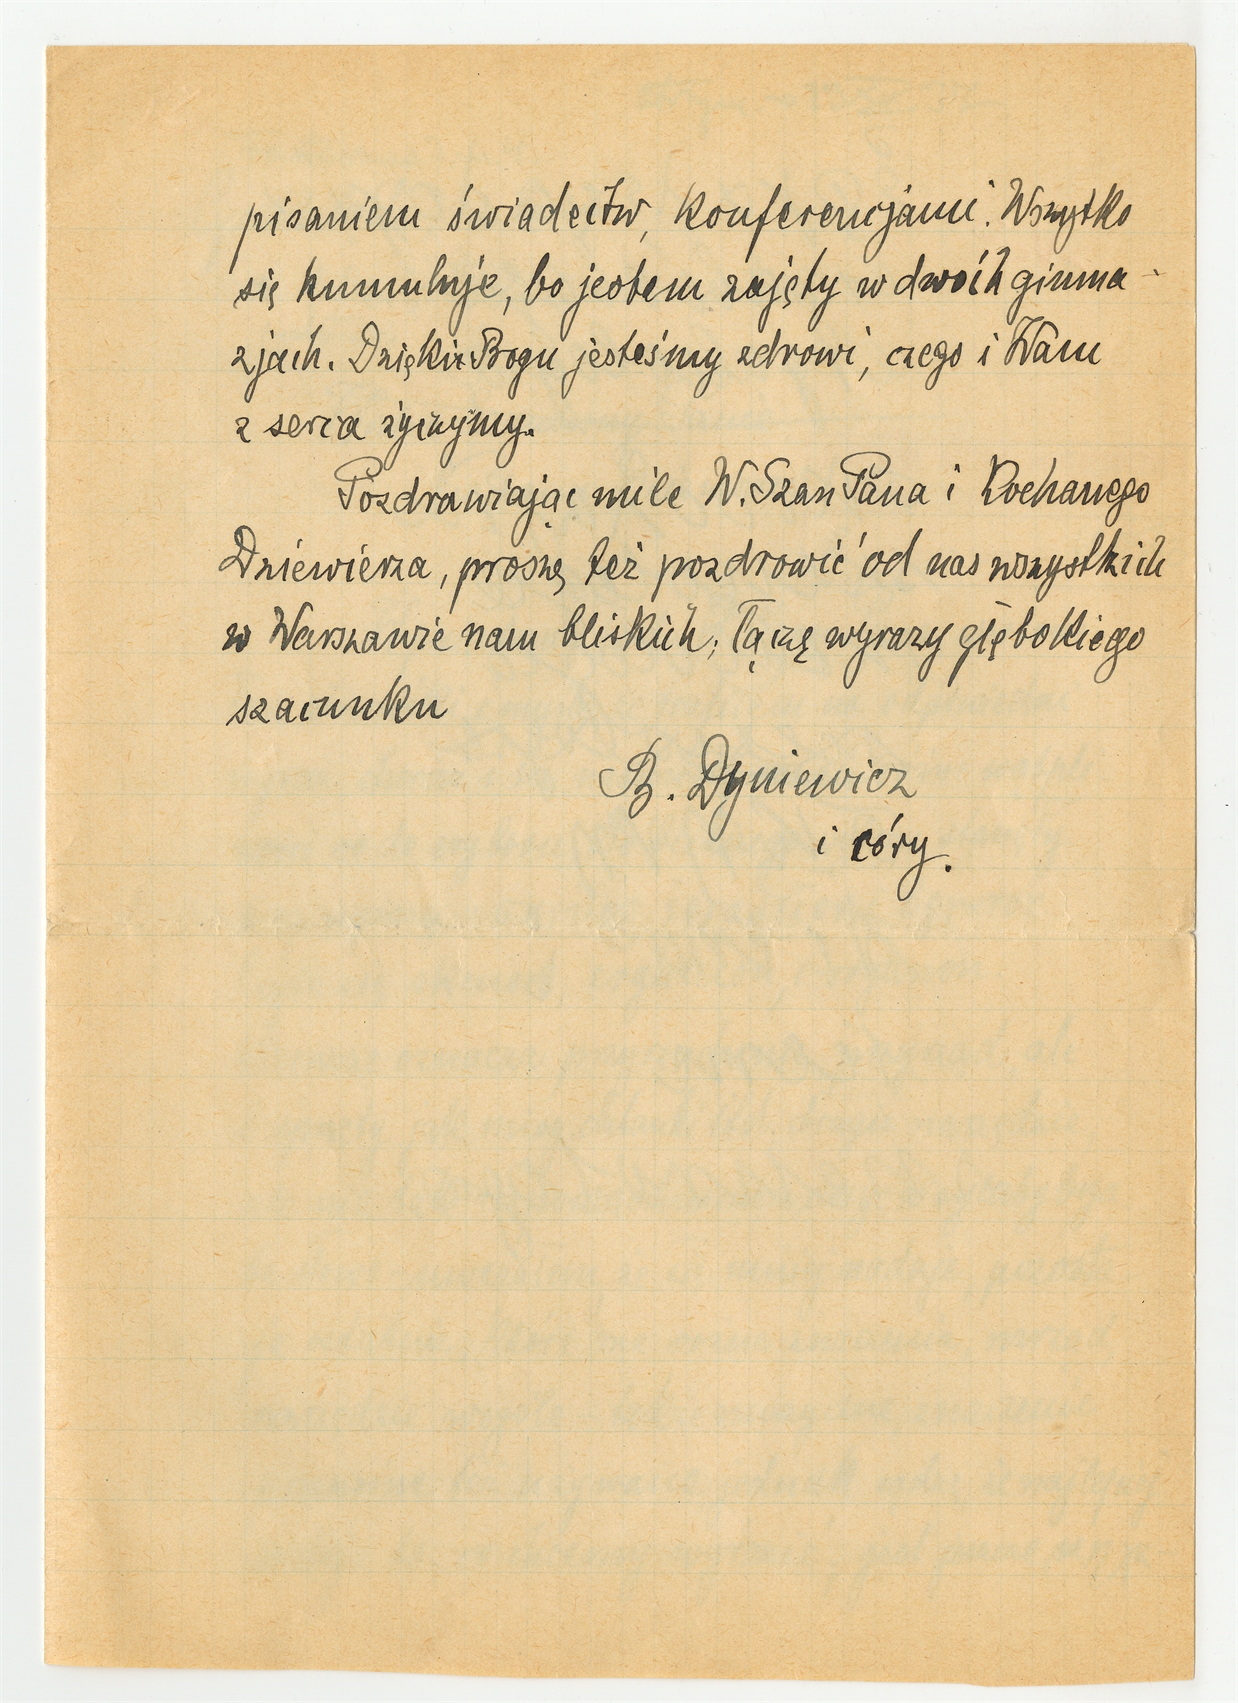 pisaniem świadectw, konferencjami. Wszystko
się kumuluje, bo jestem zajęty w dwóch gimna-
zjach. Dzięki Bogu jesteśmy zdrowi, czego i Wam
z serca życzymy.
Pozdrawiając mile W. Szan Pana i Kochanego
Dziewierza, proszę też pozdrowić od nas wszystkich
w Warszawie nam bliskich; łączę wyrazy głębokiego
szacunku
B. Dyniewicz
i córy.